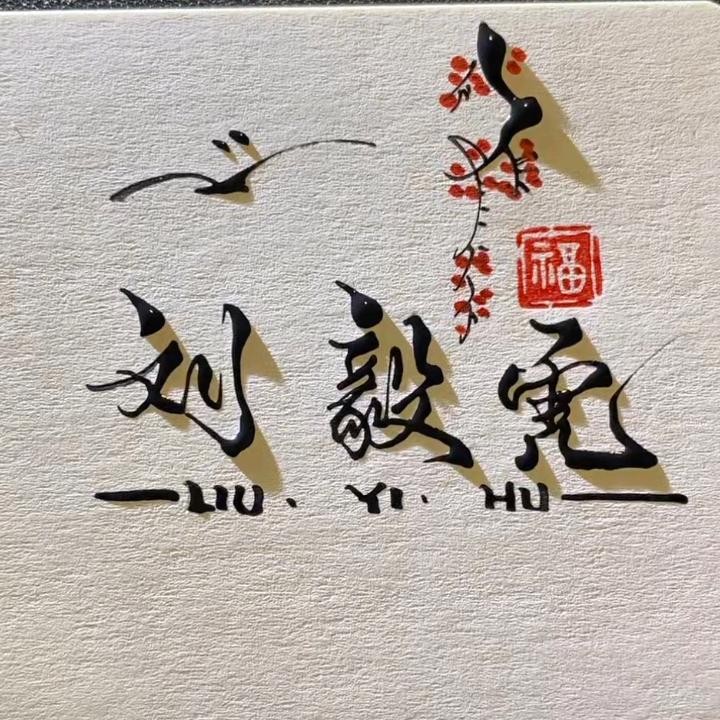 福
刘毅虎
LIU. YI. HU